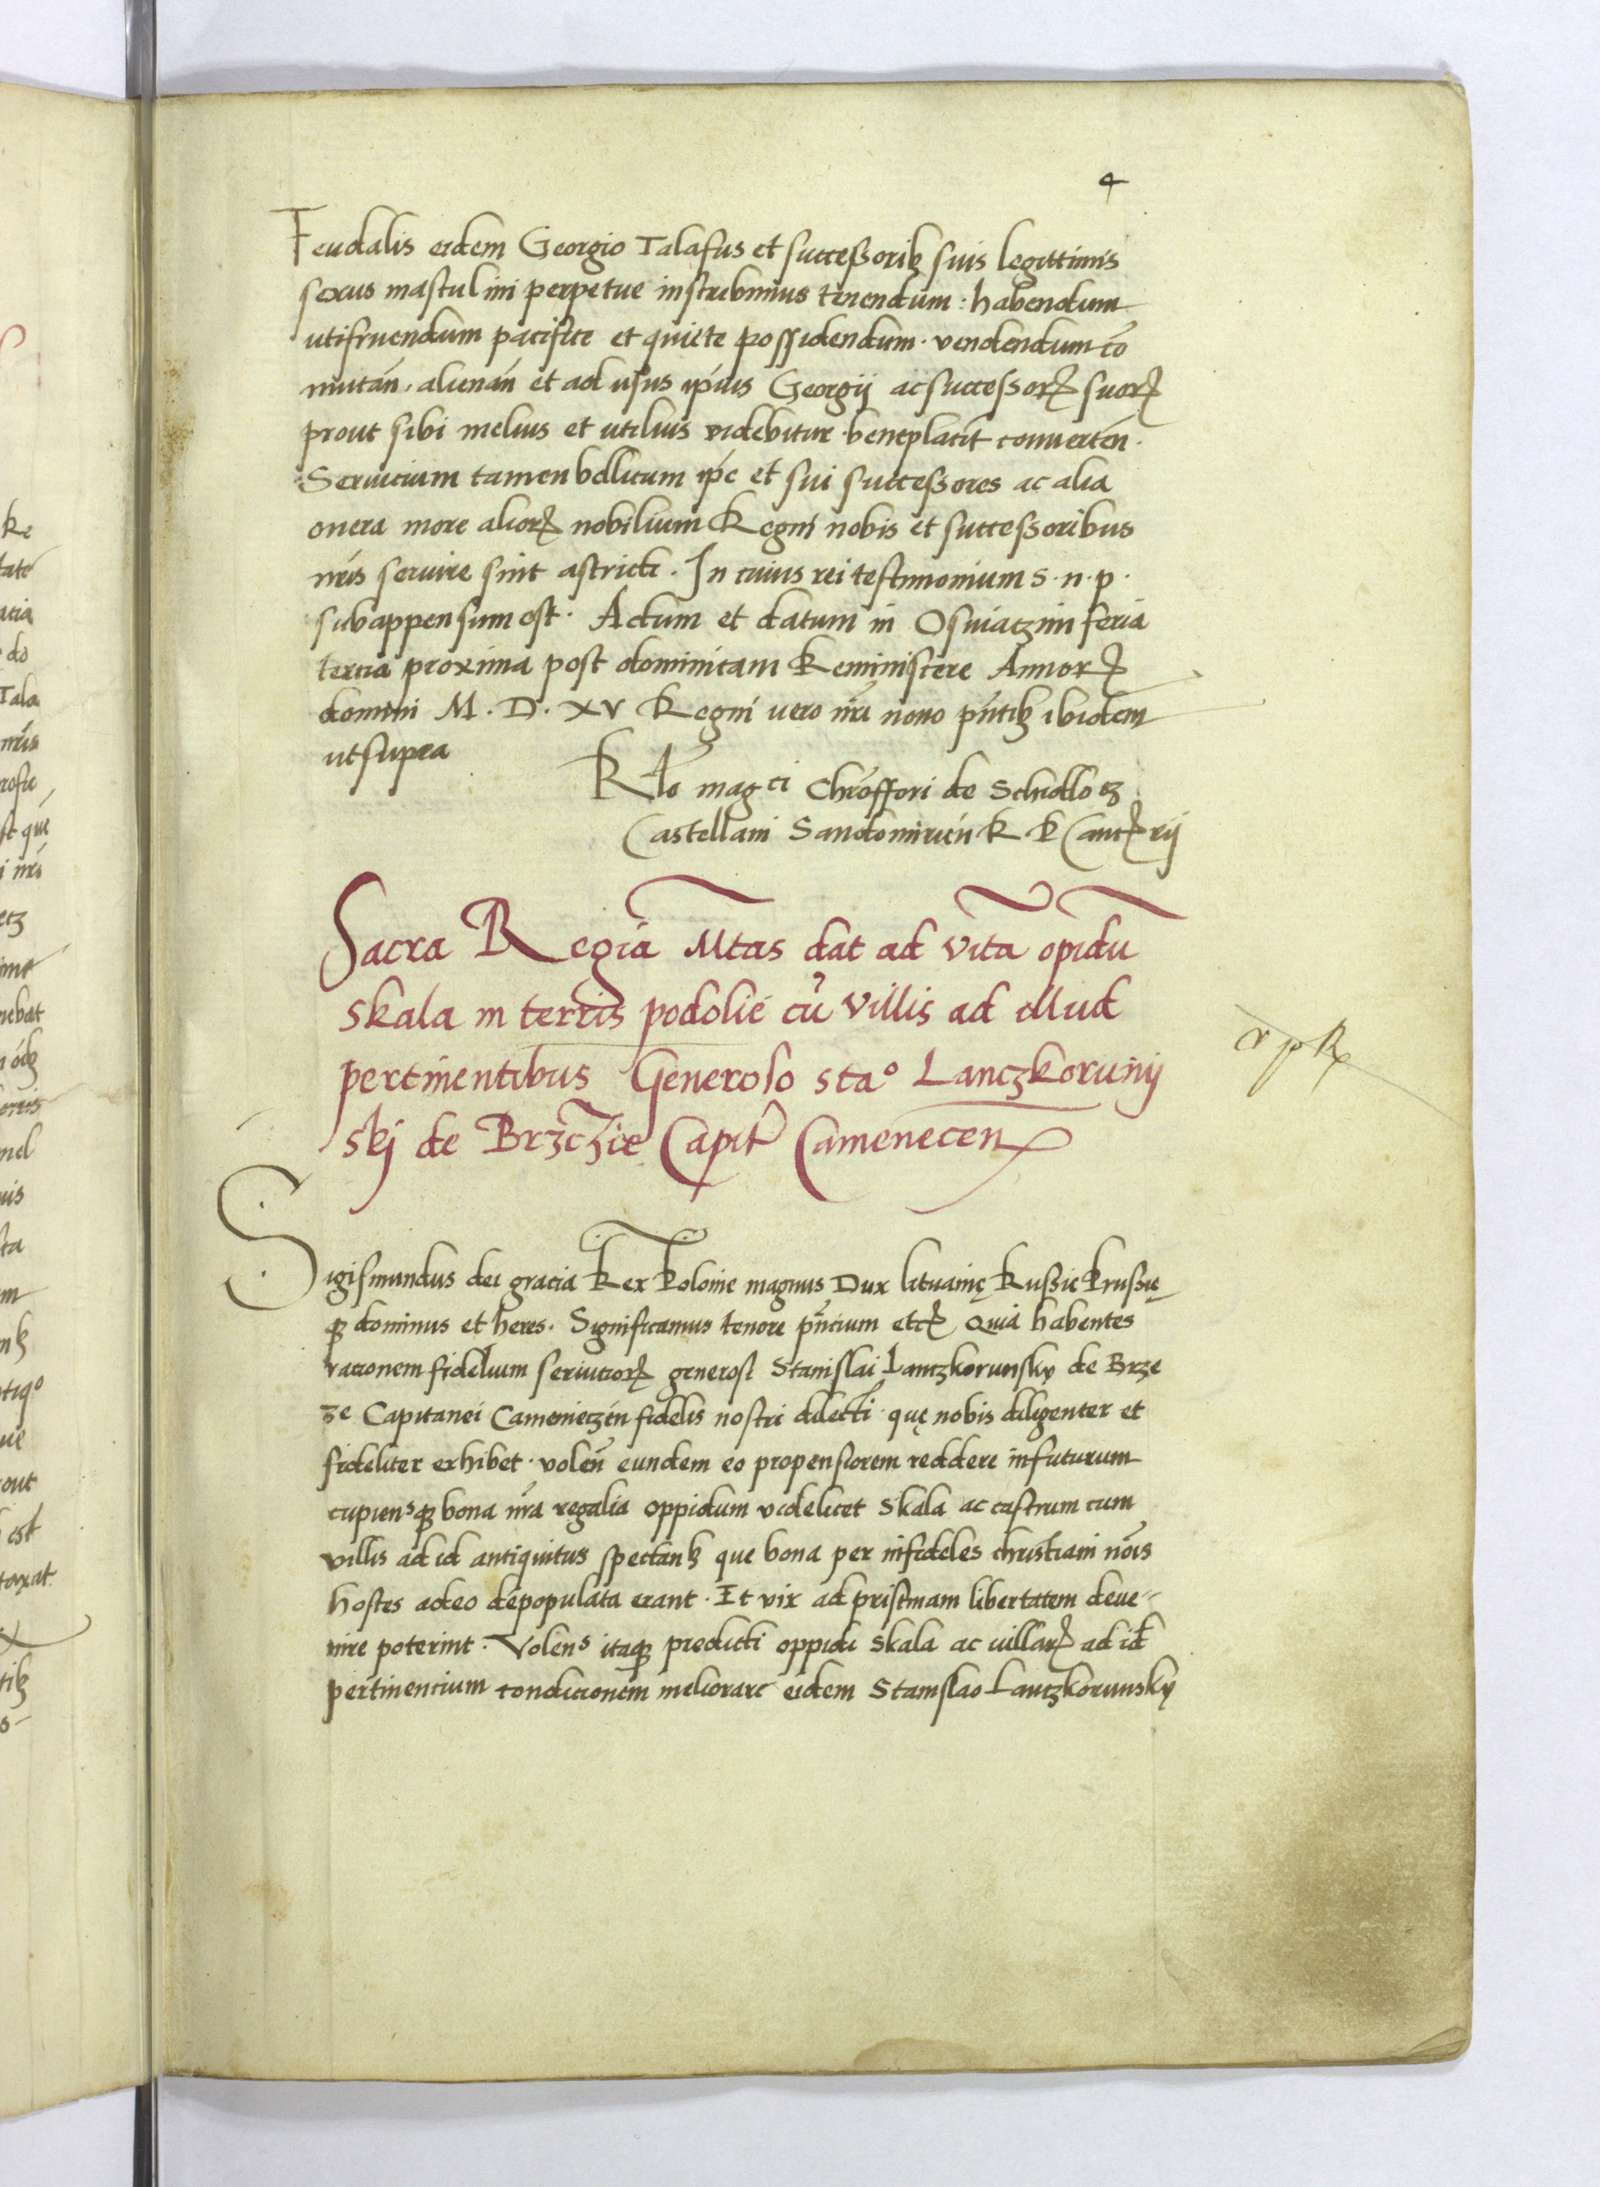 4
Feudalis eidem Georgio Talafus et successoribꝫ suis legittimis
sexus masculini perpetue inscribimus tenendum : habendum
utifruendum pacifice et quiete possidendum · vendendum cō
mutān · alienān et ad usus ip̄ius Georgij ac successorꝝ suorꝝ
prout sibi melius et utilius videbitur beneplacit̄ converten̄ ·
Servicium tamen bellicum ip̄e et sui successores ac alia
onera more aliorꝝ nobilium Regni nobis et successoribus
nr̄is servire sint astricti · In cuius rei testimonium S · n · p ·
subappensum est · Actum et datum in Osviaczim feria
tertia proxima post dominicam Reminiscere Annorꝝ
domini M · D · XV Regni vero nr̄i nono pn̄tibꝫ ibidem
ut supra
Rlō mag ci Chrōffori de Schidlo cz
Castellani Sandomirien̄ R · P Cancꝝrij
Sacra Regia Mtas dat ad vitā opidū
Skala in terris podolie cū villis ad illud
pertinentibus Generoso Staº Lanczkoruny
skj de Brzczie Capit̄ Camenecen̄
Sigismundus dei gracia Rex Polonie magnus Dux Lituanię Russie Prussię
qꝫ dominus et heres · Significamus tenore pn̄cium etcꝝ Quia habentes
racionem fidelium serviciorꝝ generosi Stanislai Lanczkorunsky de Brze
ze Capitanei Camenieczen̄ fidelis nostri dilecti · quę nobis diligenter et
fideliter exhibet · volen̄ eundem eo propensiorem reddere in futurum
cupiensqꝫ bona nr̄a regalia oppidum videlicet Skala ac castrum cum
villis ad id antiquitus spectanꝫ que bona per infideles christiani nōis
hostes adeo depopulata erant · Et vix ad pristinam libertatem deve-
nire poterint · Volens itaqꝫ predicti oppidi Skala ac villarꝝ ad id
pertinencium condicionem meliorare eidem Stanislao Lanczkorunsky